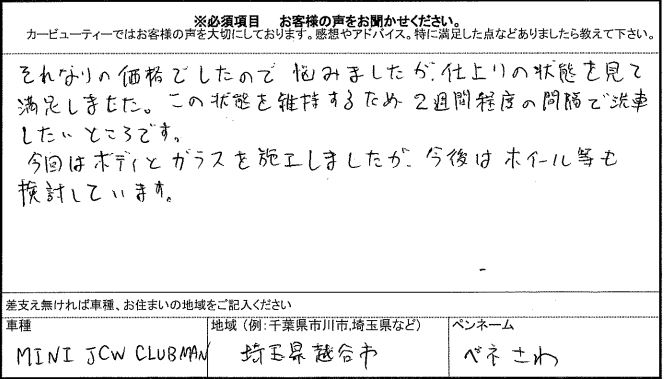 ※必須項目　お客様の声をお聞かせください。
カービューティーではお客様の声を大切にしております。感想やアドバイス。特に満足した点などありましたら教えて下さい。
それなりの価格でしたので 悩みましたが、仕上りの状態を見て
満足しました。この状態を維持するため 2週間程度の間隔で洗車
したいところです。
今回はボディとガラスを施工しましたが、今後は ホイール等も
検討しています。
差支え無ければ車種、お住まいの地域をご記入ください
車種 地域（例：千葉県市川市,埼玉県など） ペンネーム
MINI JCW CLUBMAN 埼玉県越谷市 ベネさわ